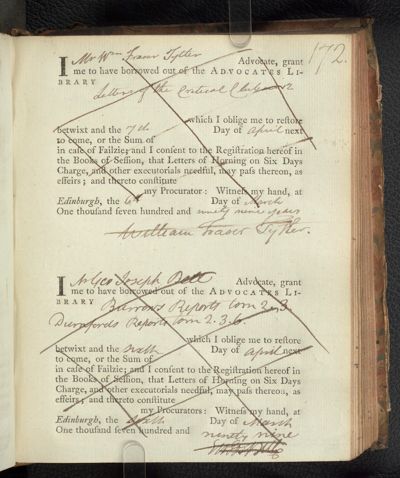 172.
I Mr Wm Fraser Tytler Advocate, grant
me to have borrowed out of the ADVOCATES LI-
BRARY
Letters of the Critical Club
which I oblige me to restore
betwixt and the 7th Day of April next
to come, or the Sum of
in case of Failzie; and I consent to the Registration hereof in
the Books of Session, that Letters of Horning on Six Days
Charge, and other executorials needful, may pass thereon, as
effeirs; and thereto constitute
my Procurator: Witness my hand, at
Edinburgh, the 6th Day of March
One thousand seven hundred and ninety nine years
William Fraser Tytler.
I Mr Geo Joseph Bell Advocate, grant
me to have borrowed out of the ADVOCATES LI-
BRARY Burrows Reports tom 2. 3
Durnfords Reports tom 2. 3. 6.
which I oblige me to restore
betwixt and the Day of April next
to come, or the Sum of
in case of Failzie; and I consent to the Registration hereof in
the Books of Session, that Letters of Horning on Six Days
Charge, and other executorials needful, may pass thereon, as
effeirs; and thereto constitute
my Procurators: Witness my hand, at
Edinburgh, the Day of March
One thousand seven hundred and
ninety nine